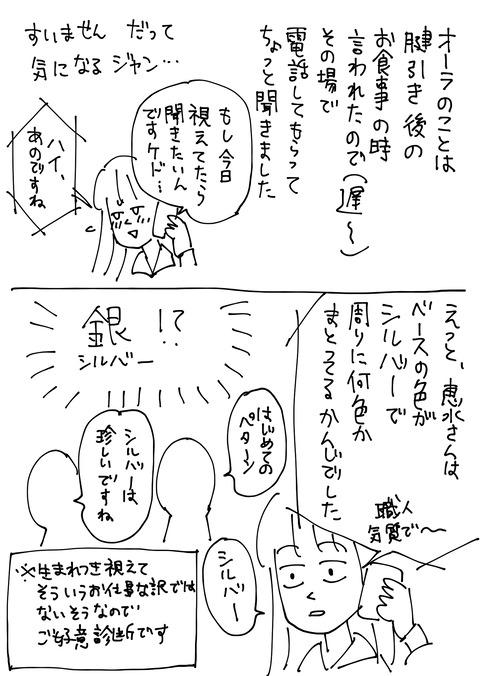 オーラのことは
腱引き後の
お食事の時
言われたので(遅〜)
その場で
電話してもらって
ちょっと聞きました
もし今日
視えてたら
聞きたいん
ですケド…
すいません だって
気になるジャン…
ハイ、
あのですね
えっと、恵水さんは
ベースの色が
シルバーで
周りに何色か
まとってるかんじでした
職人
気質で〜
銀!?
シルバー
はじめての
パターン
シルバーは
珍しいですね
シルバー
※生まれつき視えて
そういうお仕事な訳では
ないそうなので
ご好意診断です